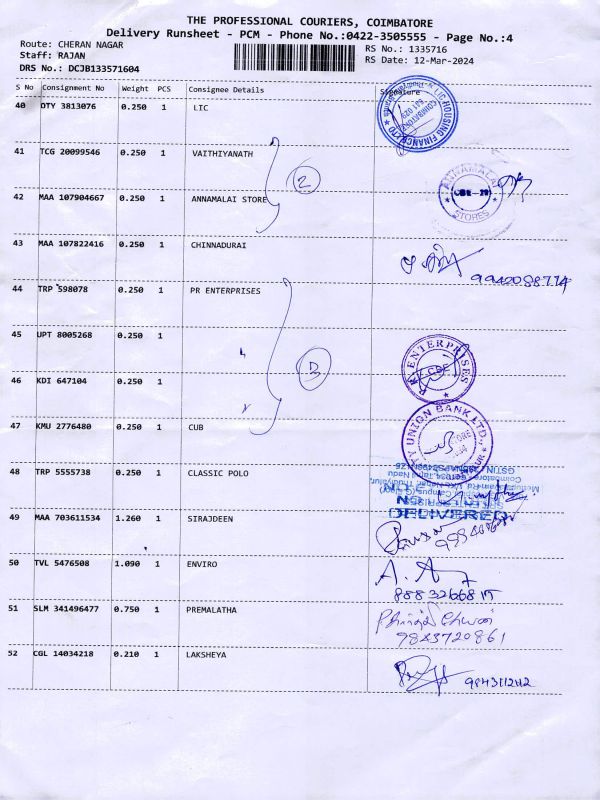 THE PROFESSIONAL COURIERS, COIMBATORE
Delivery Runsheet - PCM - Phone No.:0422-3505555 - Page No.:4
Route: CHERAN NAGAR
RS No.: 1335716
Staff: RAJAN
RS Date: 12-Mar-2024
DRS No.: DCJB133571604
S No Consignment No Weight PCS Consignee Details Signature
40 OTY 3813076 0.250 1 LIC
LIC HOUSING FINANCE LTD COIMBATORE
41 TCG 20099546 0.250 1 VAITHIYANATH
2
42 MAA 107904667 0.250 1 ANNAMALAI STORE
ANNAMALAI STORES
43 MAA 107822416 0.250 1 CHINNADURAI
9942088774
44 TRP 598078 0.250 1 PR ENTERPRISES
45 UPT 8005268 0.250 1
ENTERPRISES
46 KDI 647104 0.250 1
3
47 KMU 2776480 0.250 1 CUB
CITY UNION BANK LTD.,
48 TRP 5555738 0.250 1 CLASSIC POLO
DELIVERED
49 MAA 703611534 1.260 1 SIRAJDEEN
50 TVL 5476508 1.090 1 ENVIRO
51 SLM 341496477 0.750 1 PREMALATHA
9843720861
52 CGL 14034218 0.210 1 LAKSHEYA